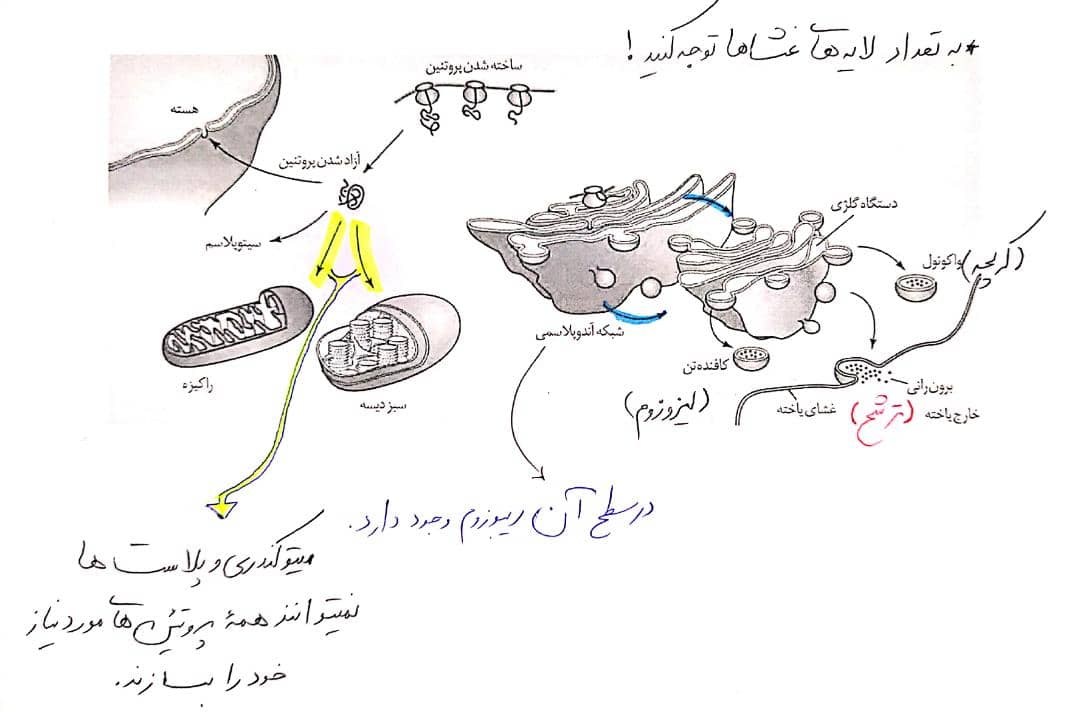 * به تعداد لایه‌های غشاها توجه کنید!
ساخته شدن پروتئین
هسته
آزاد شدن پروتئین
سیتوپلاسم
دستگاه گلژی
واکوئول (کریچه)
شبکه آندوپلاسمی
کافنده‌تن
(لیزوزوم)
راکیزه
سبز دیسه
برون‌رانی
(ترشح)
غشای یاخته
خارج یاخته
در سطح آن ریبوزوم وجود دارد.
میتوکندری و پلاست ها
نمیتوانند همهٔ پروتئین‌های مورد نیاز
خود را بسازند.